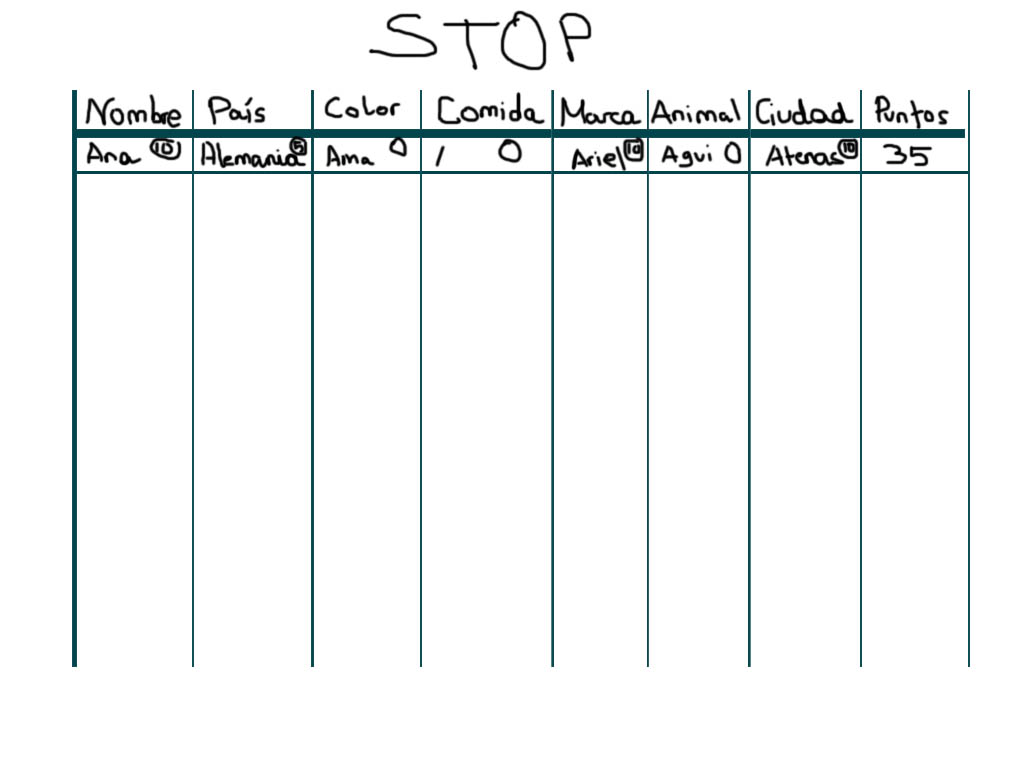 STOP
Nombre País Color Comida Marca Animal Ciudad Puntos
Ana 10 Alemania 5 Ama 0 / 0 Ariel 10 Agui 0 Atenas 10 35